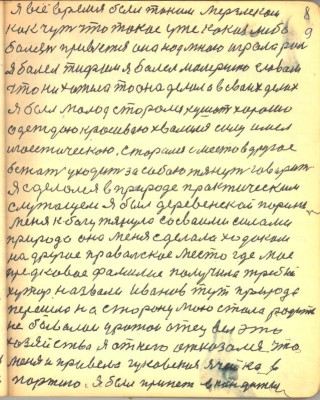 Я всё время были таким мерзляком
как чуть что такое уже какая либо
болезнь привяжется она надмною играла роль
Я болел тифом я болел малярию словом
что ни хотила то она делала в своих делах
Я был молод сторона кушать хорошо
одеждою красиваю хвалился силу имел
и гостическою. старался с места в другое
бежать уходить за собою тянут говорить
Я сделался в природе практическим
служащем Я был деревенской парина
меня к богу тянуло со своими силами
природа она меня сделала ходоком
на другие правальское место где мое
предковое фамилие получила третий
хутор назвали Иванов тут природа
перешла на сторону мою стала родить
не бывалою уражой отец вел это
хозяйства Я от него отказался что
меня и привела гуковская ячейка в
партию. Я был принят в кандаты
8
9